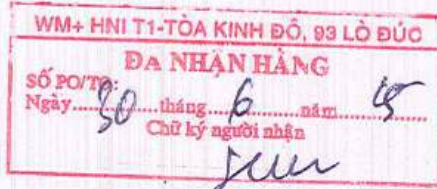 WM+ HNI T1-TÒA KINH ĐÔ, 93 LÒ ĐÚC
ĐA NHẬN HÀNG
SỐ PO/TO:
Ngày 30 tháng 6 năm
Chữ ký người nhận